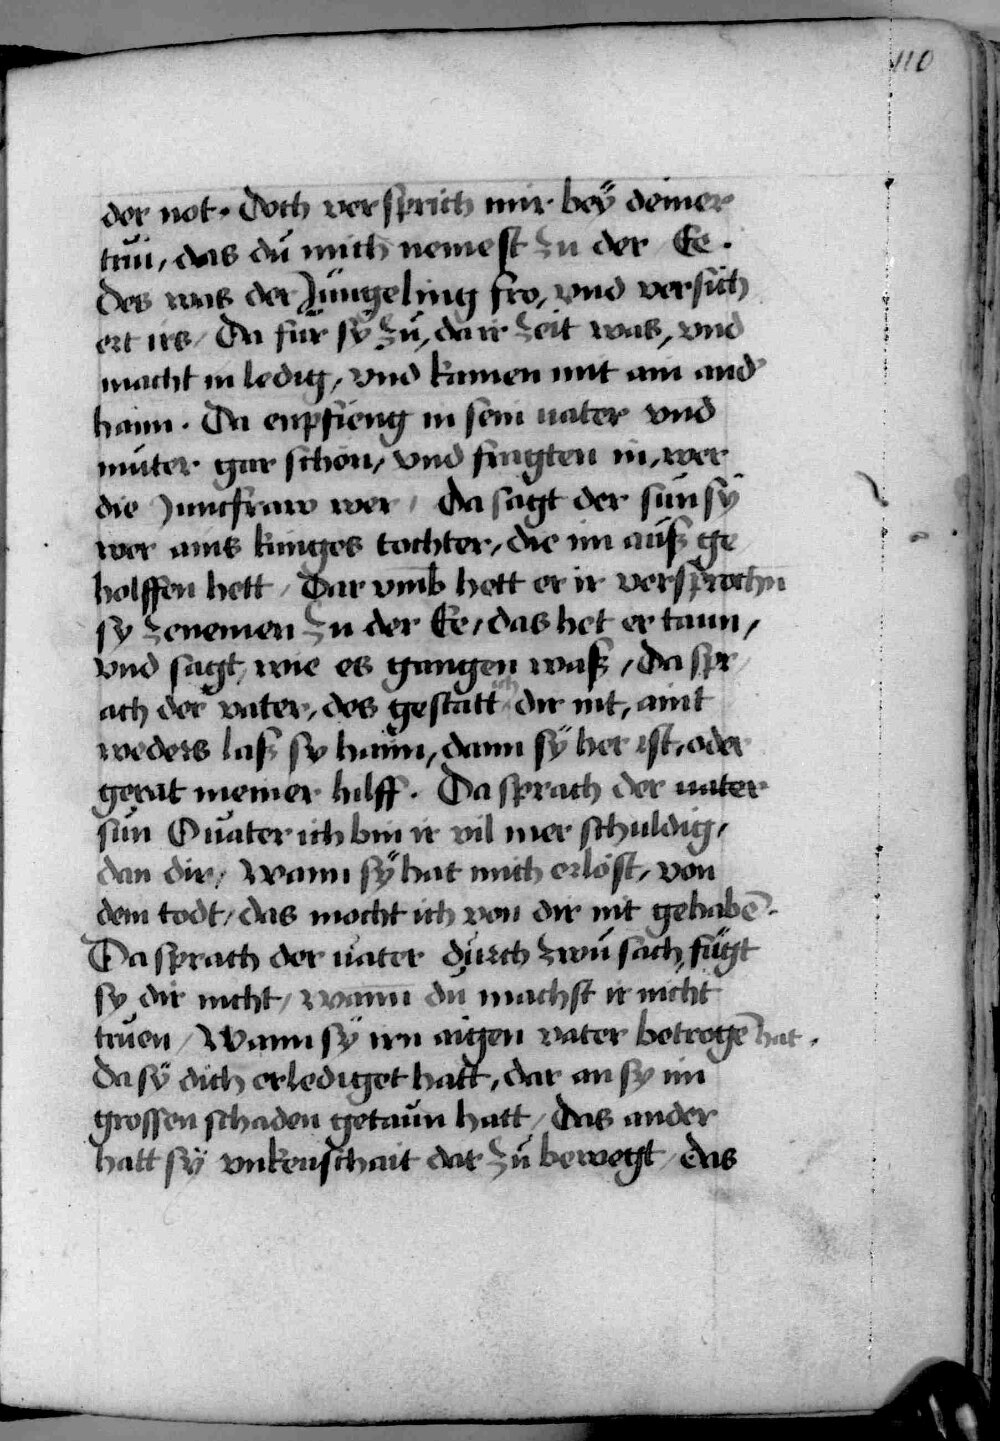 110
der not. Doch versprich mir beÿ deiner
trüi, das dü mich nemest zu der Ee.
Des was der Jüngeling fro, vnd versich
ert irs / Da für sÿ zü, da ir zeit was, vnd
macht in ledig, vnd kamen mit ain and
haim. Da enpfieng in sein uater vnd
müter gar schön, vnd fragten in, wer
die Junckfraw wer, Da sagt der sün sÿ
wer ains künges tochter, die im auß ge
holffen hett / Dar vmb hett er ir versprochn
sy zenemen zu der Ee, das het er taun,
vnd sagt, wie es gangen waß / Da spr
ach der vater, des gestatt ich dir nit, aint
weders laß sy haim, dann sÿ her ist, oder
gerat meiner hilff. Da sprach der uater
sün O uater ich bin ir vil mer schuldig,
dan dir, Wann sÿ hat mich erlöst, von
dem todt, das mocht ich von dir nit gehabē.
Da sprach der uater dürch zwü sach, fügt
sy dir nicht, wann dü machst ir nicht
truen / Wann sÿ irn aigen vater betrogē hat.
da sÿ dich erlediget hatt, dar an sy im
grossen schaden getaun hatt / Das ander
hatt sÿ vnkeuschait dar zü bewegt / das